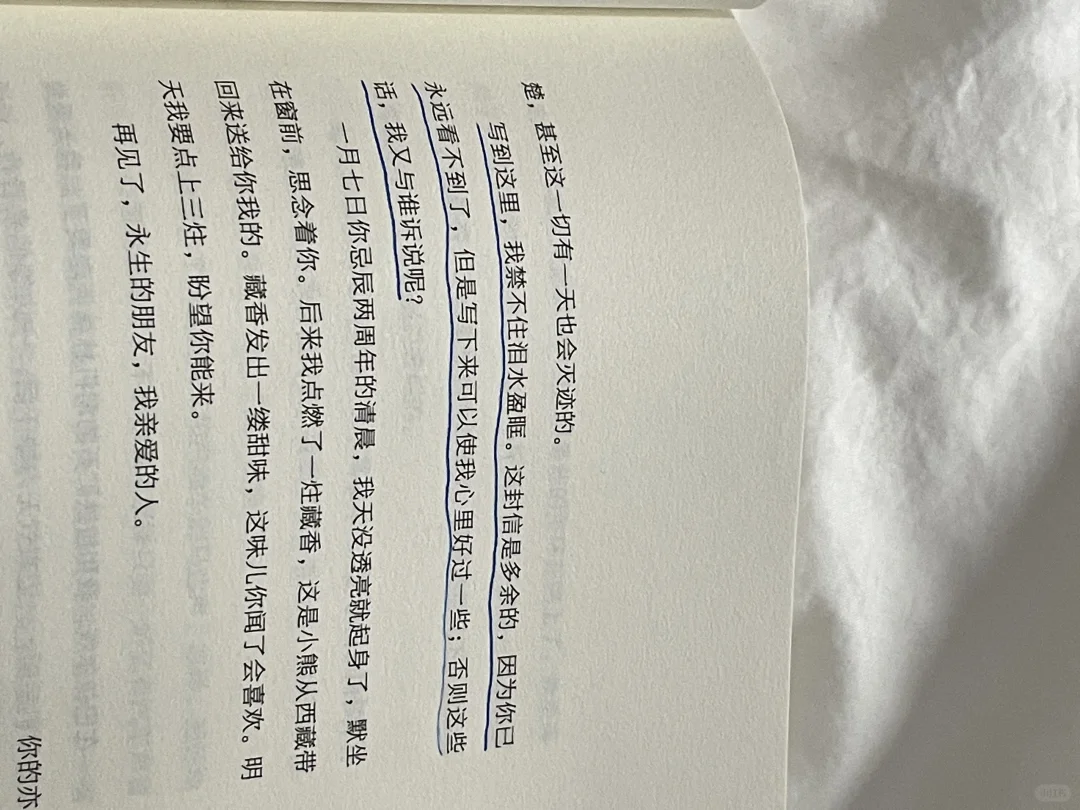 楚，甚至这一切有一天也会灭迹的。
写到这里，我禁不住泪水盈眶。这封信是多余的，因为你已
永远看不到了，但是写下来可以使我心里好过一些；否则这些
话，我又与谁诉说呢？
一月七日你忌辰两周年的清晨，我天没透亮就起身了，默坐
在窗前，思念着你。后来我点燃了一炷藏香，这是小熊从西藏带
回来送给你我的。藏香发出一缕甜味，这味儿你闻了会喜欢。明
天我要点上三炷，盼望你能来。
再见了，永生的朋友，我亲爱的人。
你的亦
小红书